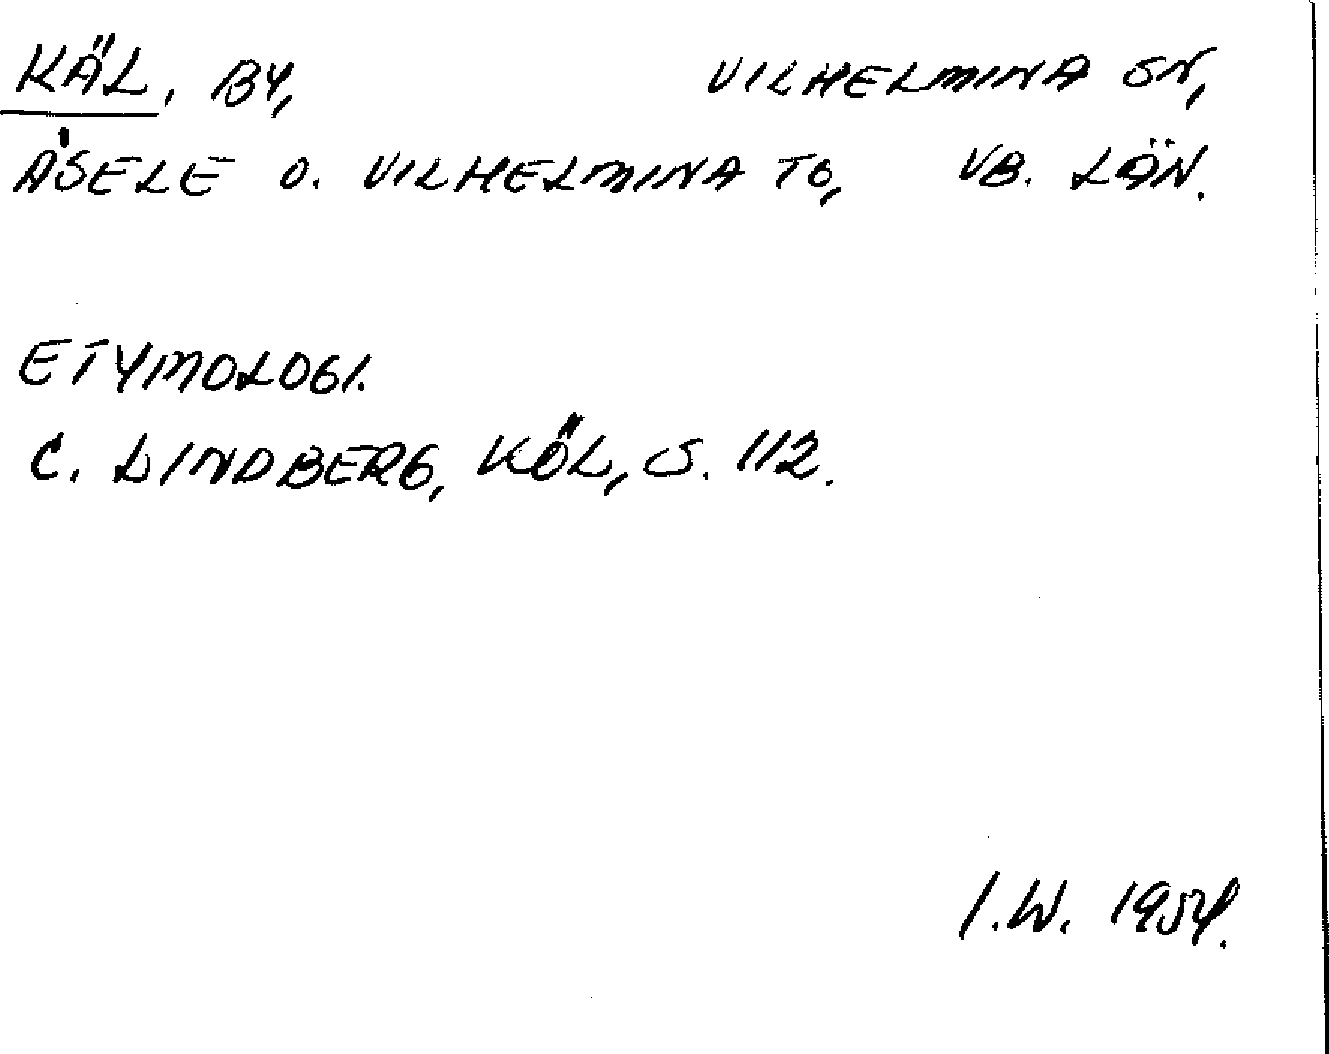 KÄL, BY, VILHELMINA SN,
ÅSELE O. VILHELMINA TG, VB. LÄN.
ETYMOLOGI.
C. LINDBERG, KÖL, S. 112.
I.W. 1954.